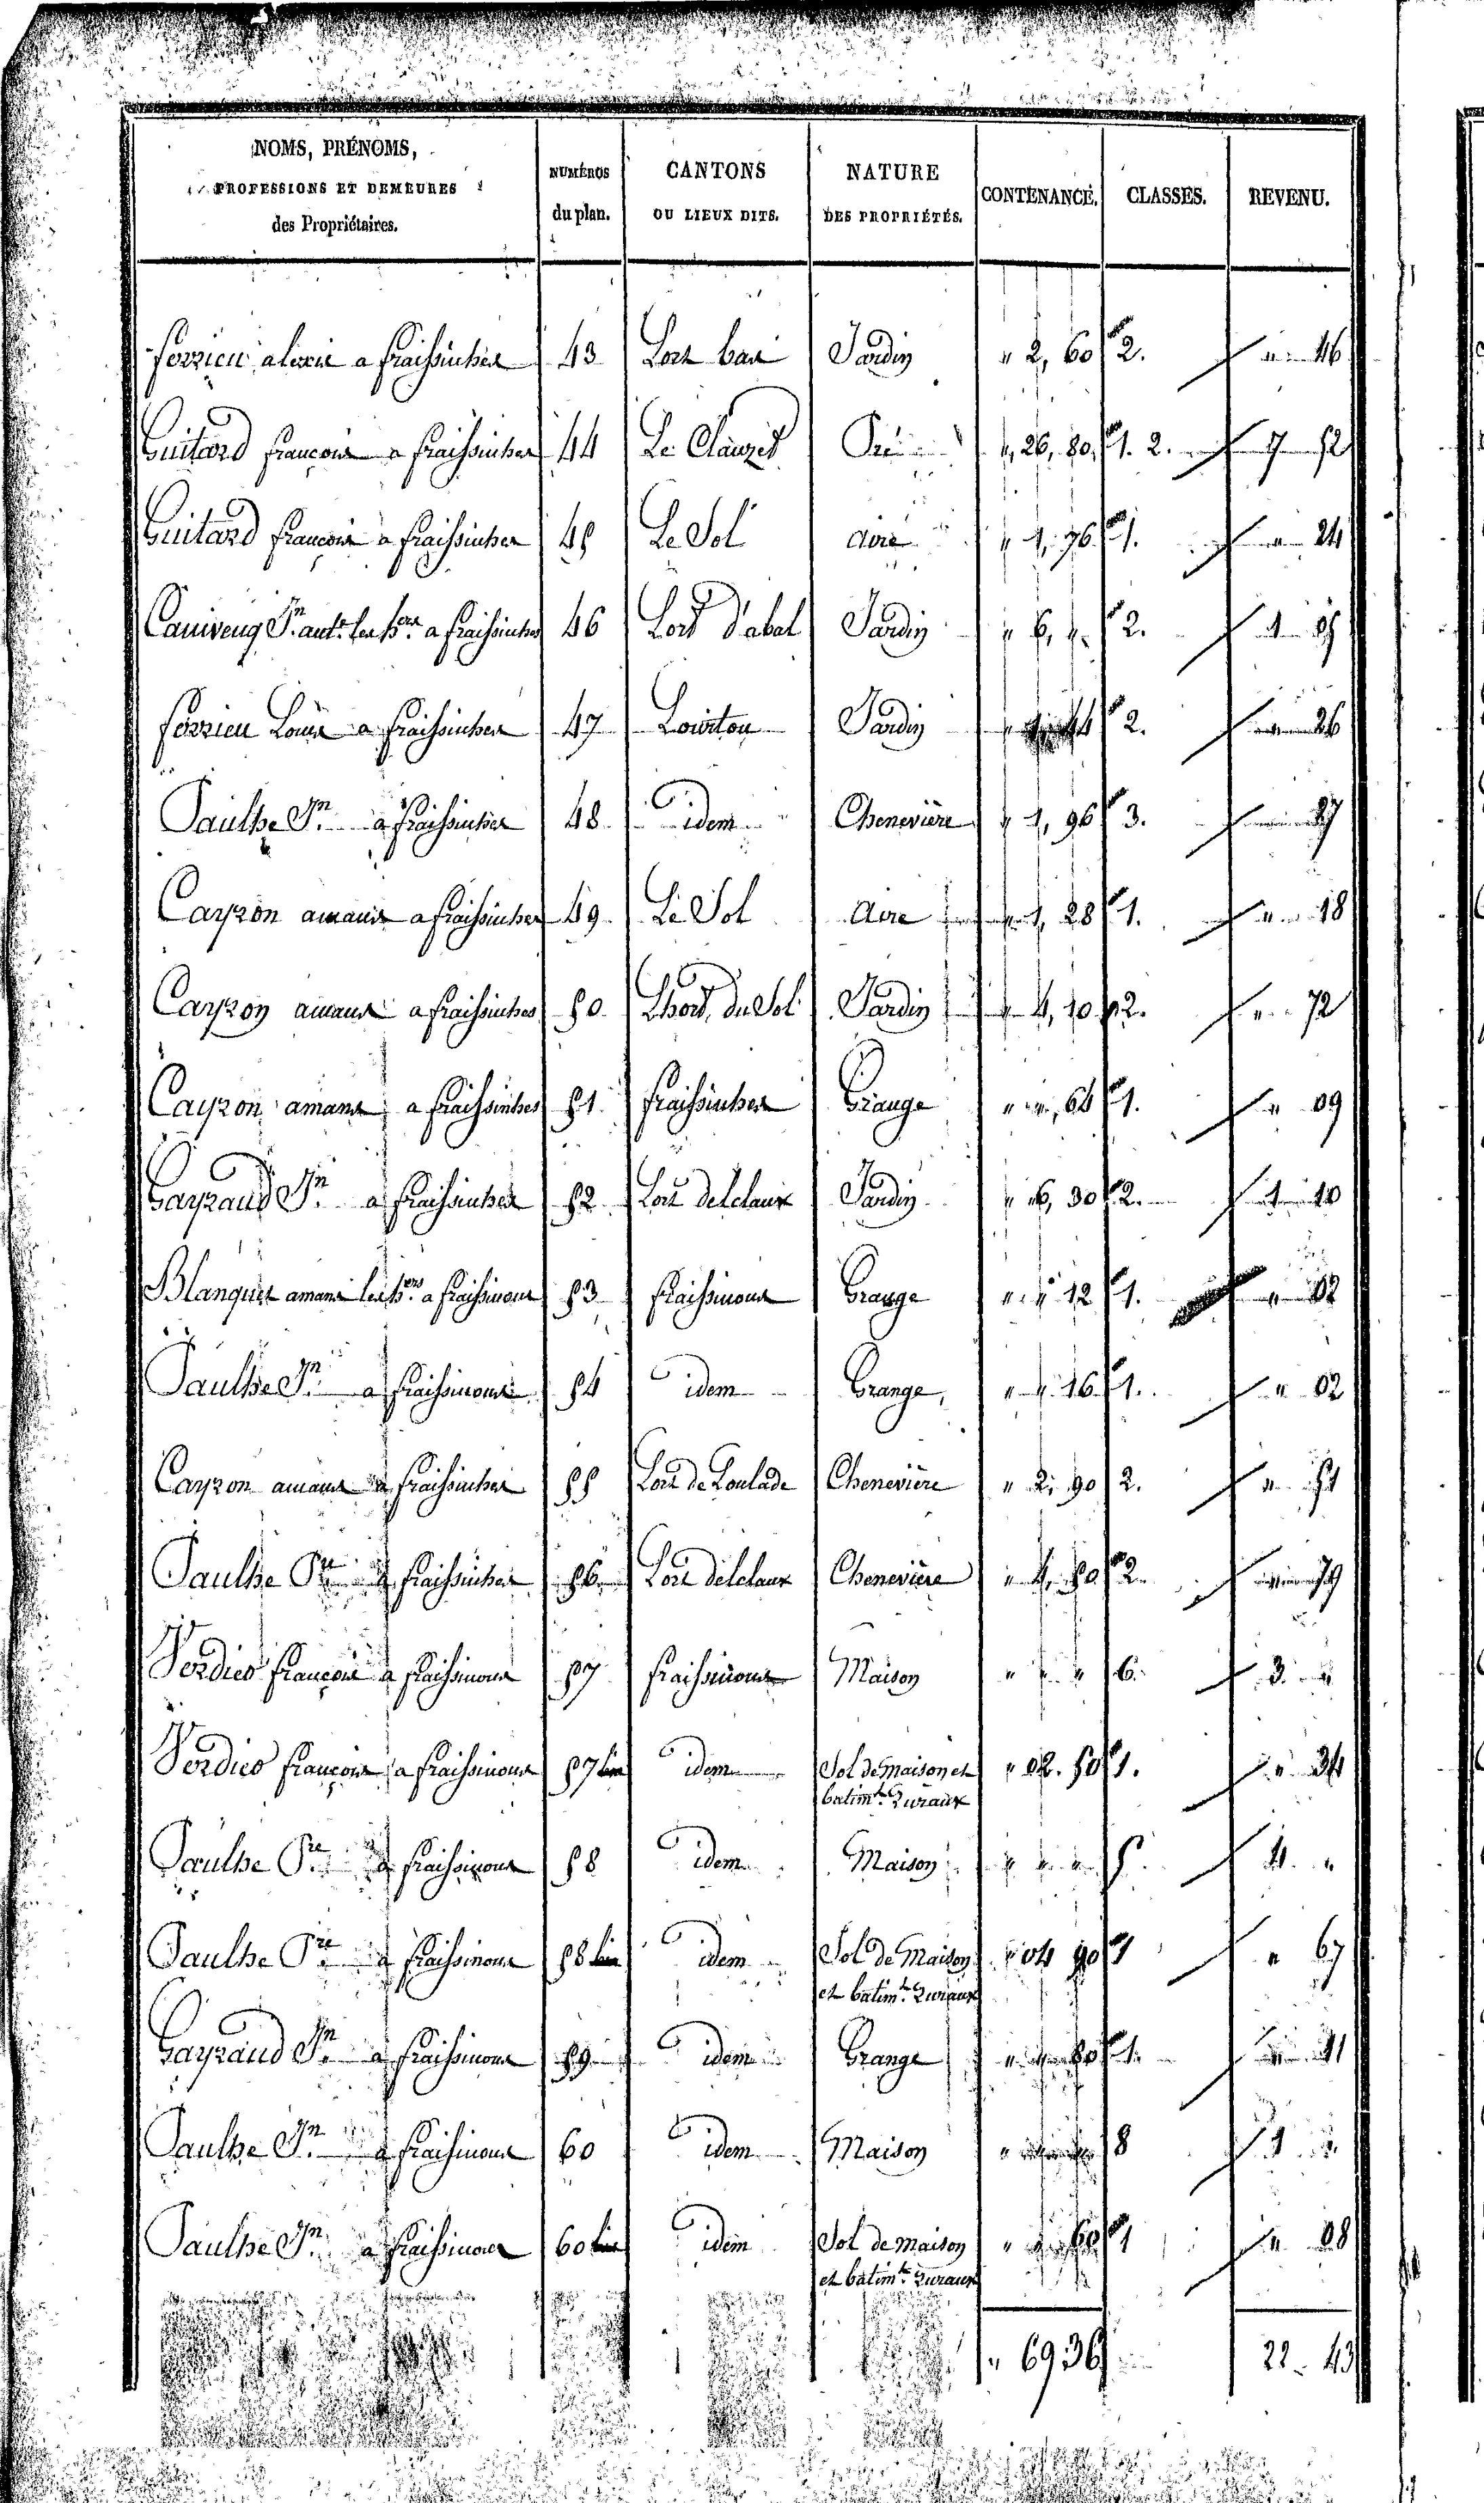 NOMS, PRÉNOMS, PROFESSIONS ET DEMEURES des Propriétaires. NUMÉROS du plan. CANTONS OU LIEUX DITS. NATURE DES PROPRIÉTÉS. CONTENANCE. CLASSES. REVENU.
a fraissinhes 43 Jardin " 2, 60 2. " 46
Guitard françois a fraissinhes 44 Le Clauzet Pré " 26, 80 1. 2. 7 52
Guitard françois a fraissinhes 45 Le Sol aire " 1, 76 1. " 24
a fraissinhes 46 Lort d'abal Jardin " 6, " 2. 1 05
Louis a fraissinhes 47 Jardin 2. " 26
Paulhe Jn a fraissinhes 48 idem Chenevière " 1, 96 3.
Cayron amans a fraissinhes 49 Le Sol aire " 1, 28 1. " 18
Cayron amans a fraissinhes 50 Lhort du Sol Jardin " 4, 10 2. " 72
Cayron amans a fraissinhes 51 fraissinhes Grange " ", 64 1. " 09
Gayraud Jn a fraissinhes 52 Lort delclaux Jardin " 6, 30 2. 1 10
Blanquet amans les hers a fraissinous 53 fraissinous Grange " " 12 1. " 02
Paulhe Jn a fraissinous 54 idem Grange " " 16 1. " 02
Cayron amans a fraissinhes 55 Lort de Chenevière " 2, 90 2. " 51
Paulhe Pre a fraissinhes 56 Lort delclaux Chenevière " 4, 50 2. " 79
Verdier françois a fraissinous 57 fraissinous Maison " " " 6. 3 "
Verdier françois a fraissinous 57 bis idem Sol de maison et " 02. 50 1. " 34
batimts ruraux
Paulhe Pre a fraissinous 58 idem Maison " " " 5. 4. "
Paulhe Pre a fraissinous 58 bis idem Sol de Maison " 04 90 1 " 67
et batimts ruraux
Gayraud Jn a fraissinous 59 idem Grange " " 80 1. " 11
Paulhe Jn a fraissinous 60 idem Maison " " " 8 1 "
Paulhe Jn a fraissinous 60 bis idem Sol de maison " " 60 1 " 08
et batimts ruraux
" 6936 22 - 43